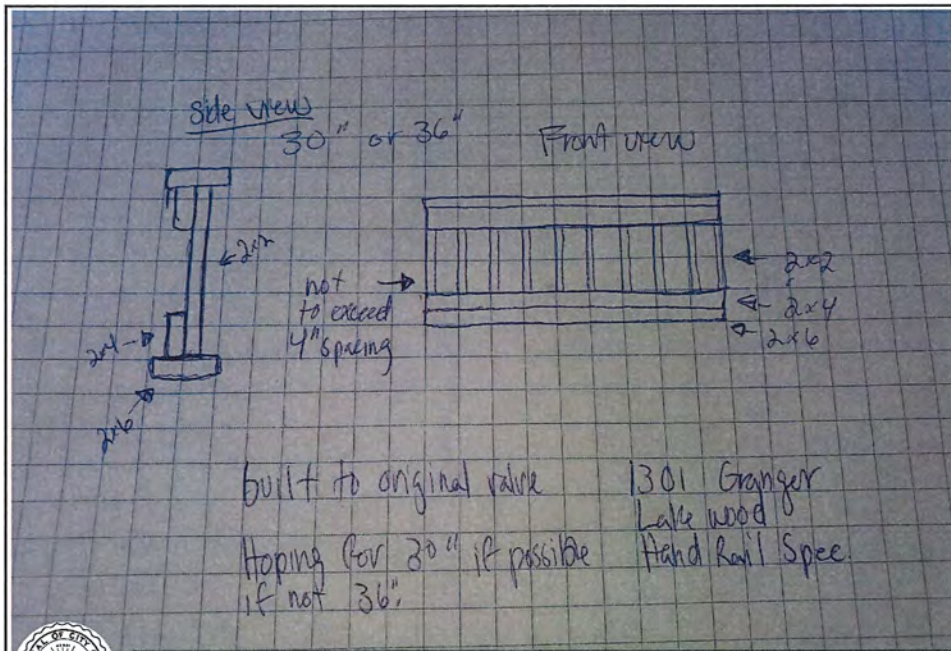 Side view
30" or 36"
Front view
2x2
2x4
2x6
not
to exceed
4" spacing
2x2
2x4
2x6
built to original value
Hoping for 30" if possible
if not 36".
1301 Granger
Lakewood
Hand Rail Spec.
AL OF CITY